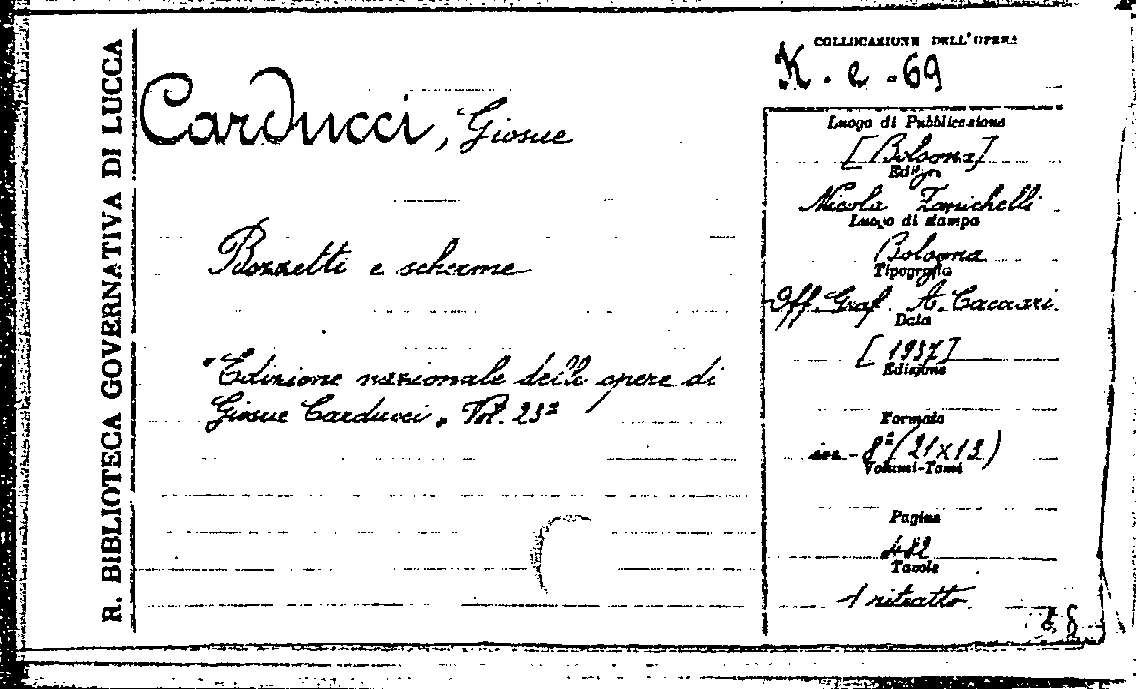 R. BIBLIOTECA GOVERNATIVA DI LUCCA
COLLOCAZIONE DELL'OPERA
K. e. 69
Carducci, Giosue
Bozzetti e scherme
"Edizione nazionale delle opere di
Giosue Carducci„ Vol. 23º
Luogo di Pubblicazione
[Bologna]
Editore
Nicola Zanichelli
Luogo di stampa
Bologna
Tipografia
Off. Graf. A. Cacciari.
Data
[1937]
Edizione
Formato
in-8º (21x13)
Volumi-Tomi
Pagine
482
Tavole
1 ritratto